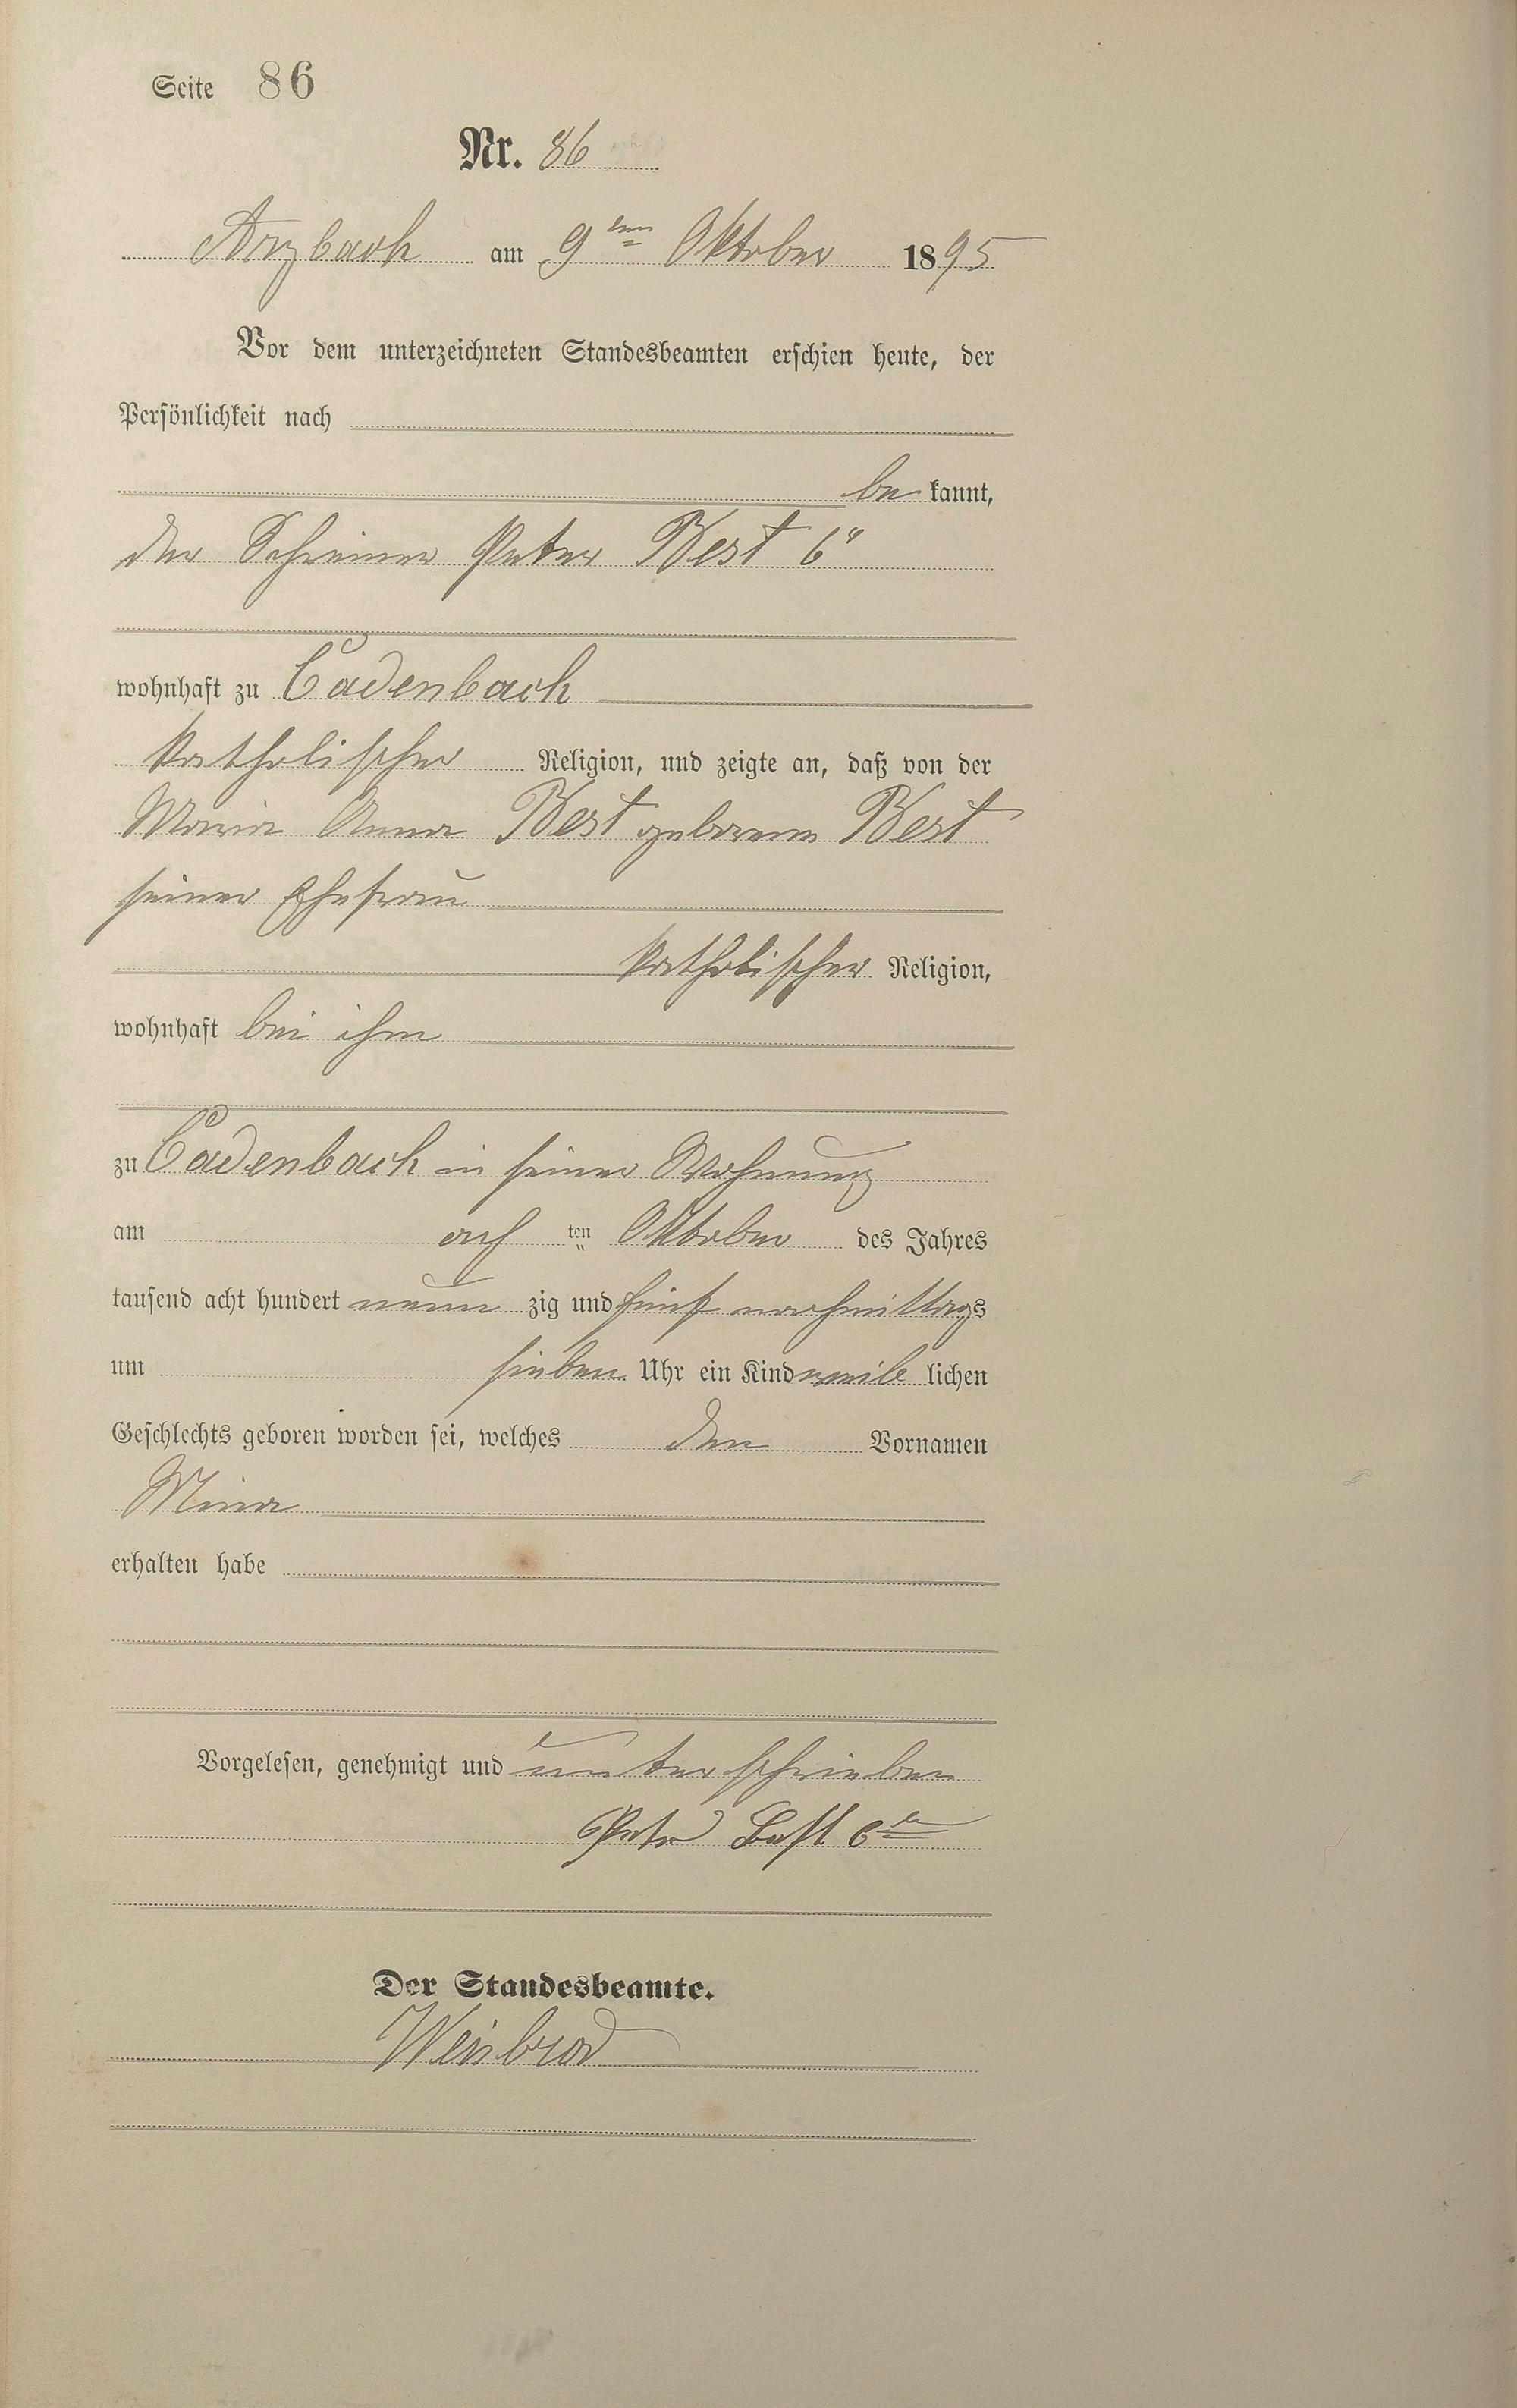 Seite 86
Nr. 86
Arzbach am 9ten Oktober 1895
Vor dem unterzeichneten Standesbeamten erschien heute, der
Persönlichkeit nach
be kannt,
der Schreiner Peter Best 6"
wohnhaft zu Cadenbach
katholischer Religion, und zeigte an, daß von der
Maria Anna Best geborene Best
seiner Ehefrau
katholischer Religion,
wohnhaft bei ihm
zu Cadenbach in seiner Wohnung
am ach ten Oktober des Jahres
tausend acht hundert neun zig und fünf nachmittags
um sieben Uhr ein Kind weib lichen
Geschlechts geboren worden sei, welches den Vornamen
Mina
erhalten habe
Vorgelesen, genehmigt und unterschrieben
Peter Best 6te
Der Standesbeamte.
Weinbrod